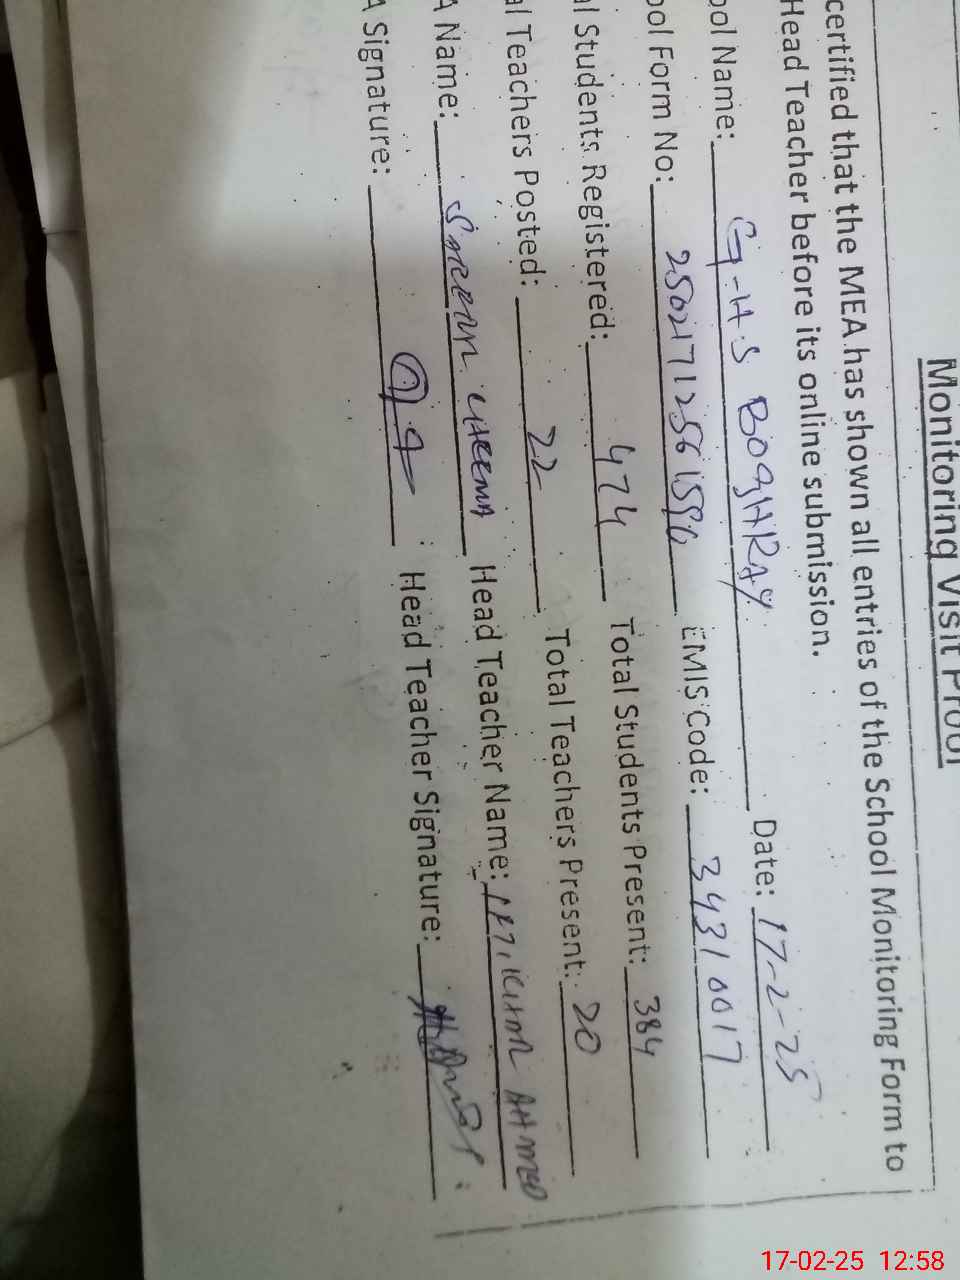 Monitoring Visit Proof
certified that the MEA has shown all entries of the School Monitoring Form to
Head Teacher before its online submission.
ool Name: G.H.S BOGHRAY Date: 17-2-25
ool Form No: EMIS Code: 34310017
al Students Registered: 474 Total Students Present: 384
al Teachers Posted: 22 Total Teachers Present: 20
A Name: CHEEMA Head Teacher Name: AHMED
A Signature: Head Teacher Signature:
17-02-25 12:58